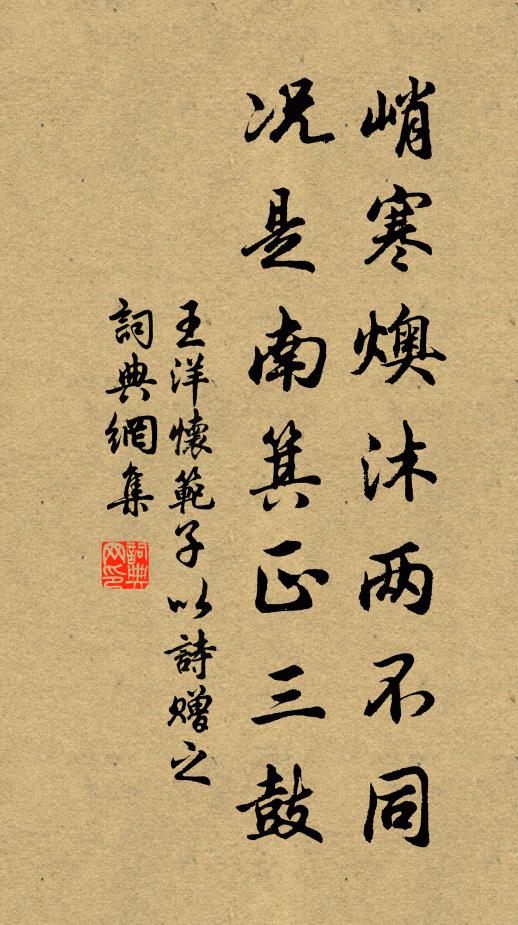 峭寒燠沐两不同
况是南箕正三鼓
王洋懷範子以詩贈之
詞典網集
詞典
网印